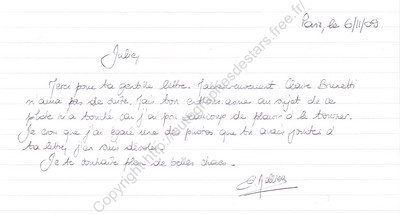 Paris, le 6/11/09
Julien,
Merci pour ta gentille lettre. Malheureusement Claire Brunetti
n'aura pas de suite. Mais ton enthousiasme au sujet de ce
pilote m'a touché car j'ai pris beaucoup de plaisir à le tourner.
Je crois que j'ai égaré une des photos que tu avais jointes à
ta lettre, j'en suis désolée.
Je te souhaite plein de belles choses.
Copyright http://autographesdestars.free.fr/